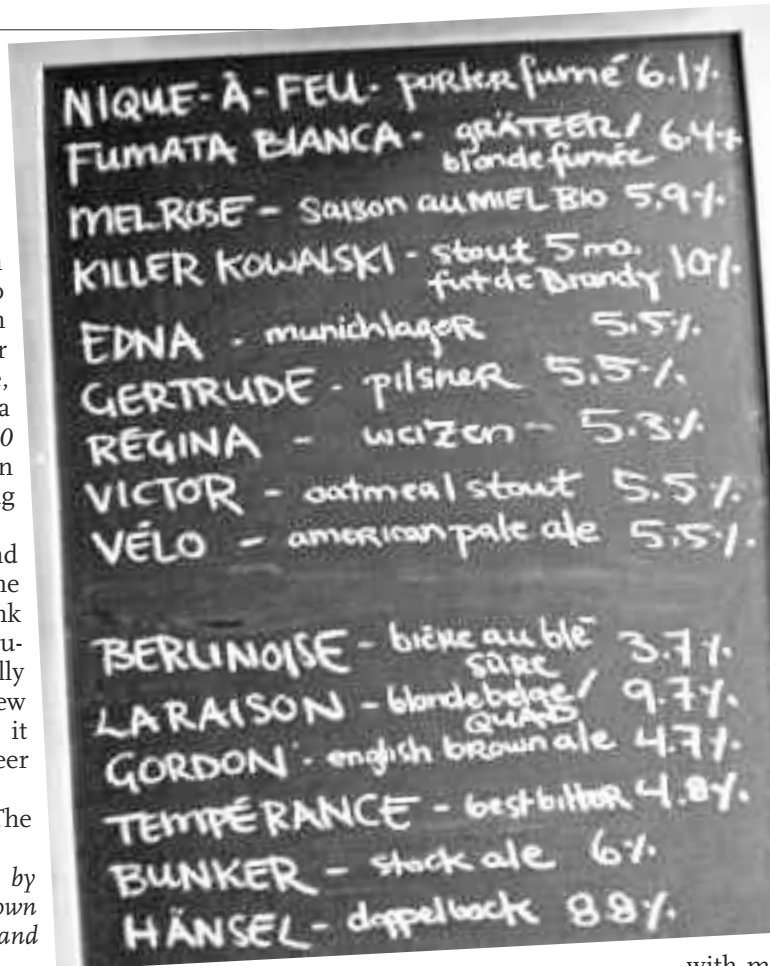 NIQUE-À-FEU - porter fumé 6.1%
FUMATA BIANCA - GRÄTZER /
blonde fumée 6.4%
MELROSE - Saison au MIEL BIO 5.9%
KILLER KOWALSKI - stout 5 mo.
fut de Brandy 10%
EDNA - munich lager 5.5%
GERTRUDE - pilsner 5.5%
RÉGINA - weizen - 5.3%
VICTOR - oatmeal stout 5.5%
VÉLO - american pale ale 5.5%
BERLINOISE - bière au blé
sûre 3.7%
LARAISON - blonde belge /
QUAD 9.7%
GORDON - english brown ale 4.7%
TEMPÉRANCE - best bitter 4.8%
BUNKER - stock ale 6%
HÄNSEL - doppelbock 8.8%
it
The
by
own
and
with